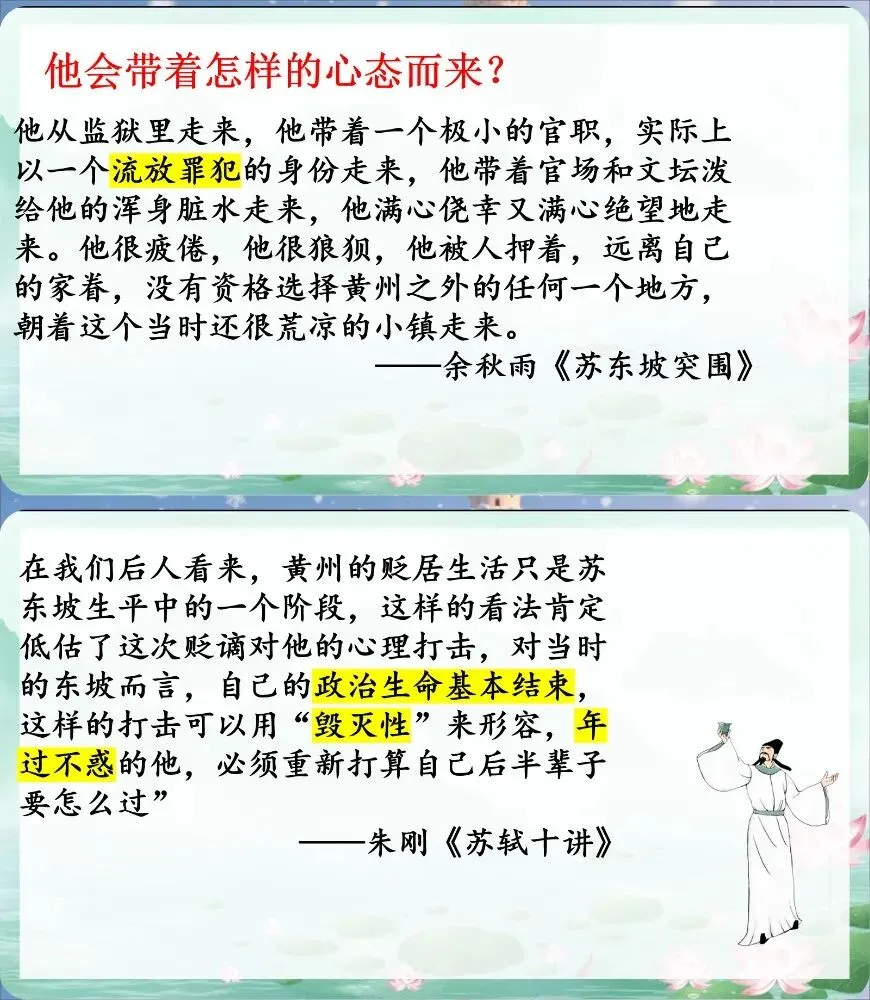 他会带着怎样的心态而来？
他从监狱里走来，他带着一个极小的官职，实际上
以一个流放罪犯的身份走来，他带着官场和文坛泼
给他的浑身脏水走来，他满心侥幸又满心绝望地走
来。他很疲倦，他很狼狈，他被人押着，远离自己
的家眷，没有资格选择黄州之外的任何一个地方，
朝着这个当时还很荒凉的小镇走来。
——余秋雨《苏东坡突围》
在我们后人看来，黄州的贬居生活只是苏
东坡生平中的一个阶段，这样的看法肯定
低估了这次贬谪对他的心理打击，对当时
的东坡而言，自己的政治生命基本结束，
这样的打击可以用“毁灭性”来形容，年
过不惑的他，必须重新打算自己后半辈子
要怎么过”
——朱刚《苏轼十讲》